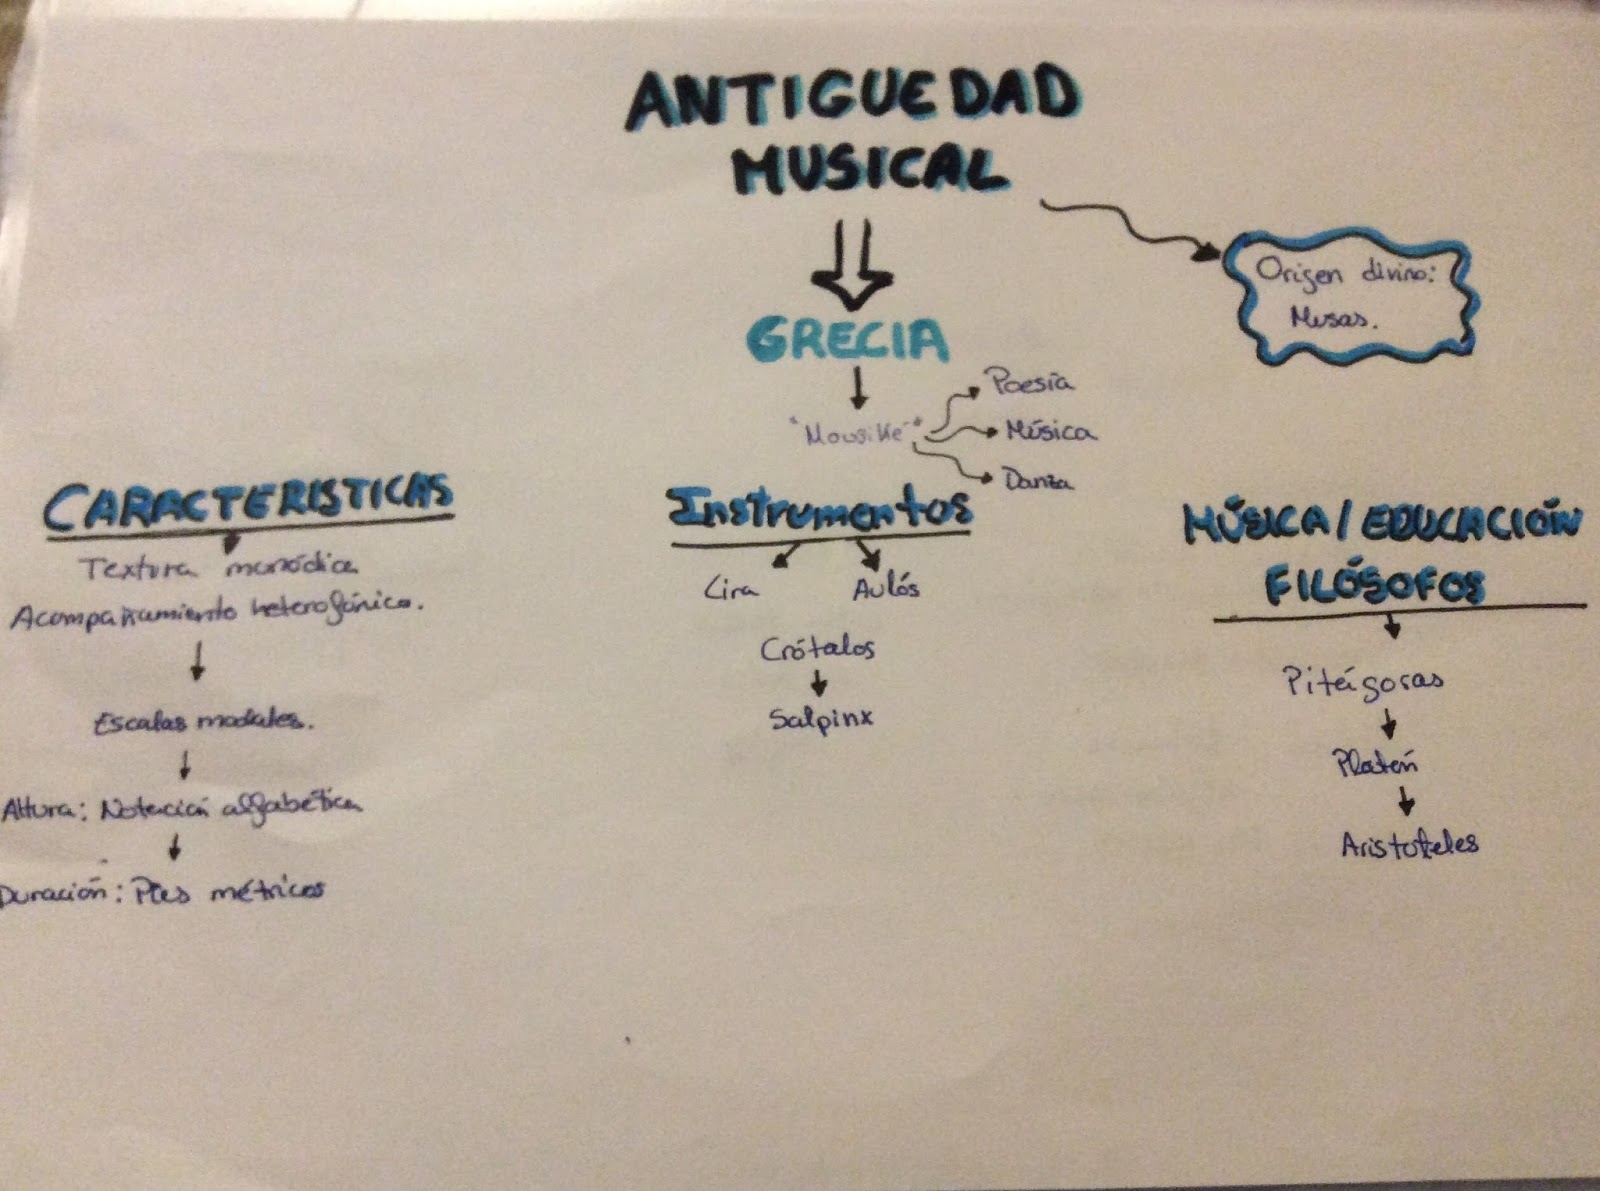 ANTIGUEDAD
MUSICAL
Origen divino:
Musas.
GRECIA
"Mousiké"
Poesía
Música
Danza
CARACTERISTICAS
Textura monódica
Acompañamiento heterofónico.
Escalas modales.
Altura: Notación alfabética
Duración: Pies métricos
Instrumentos
Lira Aulós
Crótalos
Salpinx
MÚSICA/EDUCACIÓN
FILÓSOFOS
Pitágoras
Platón
Aristoteles